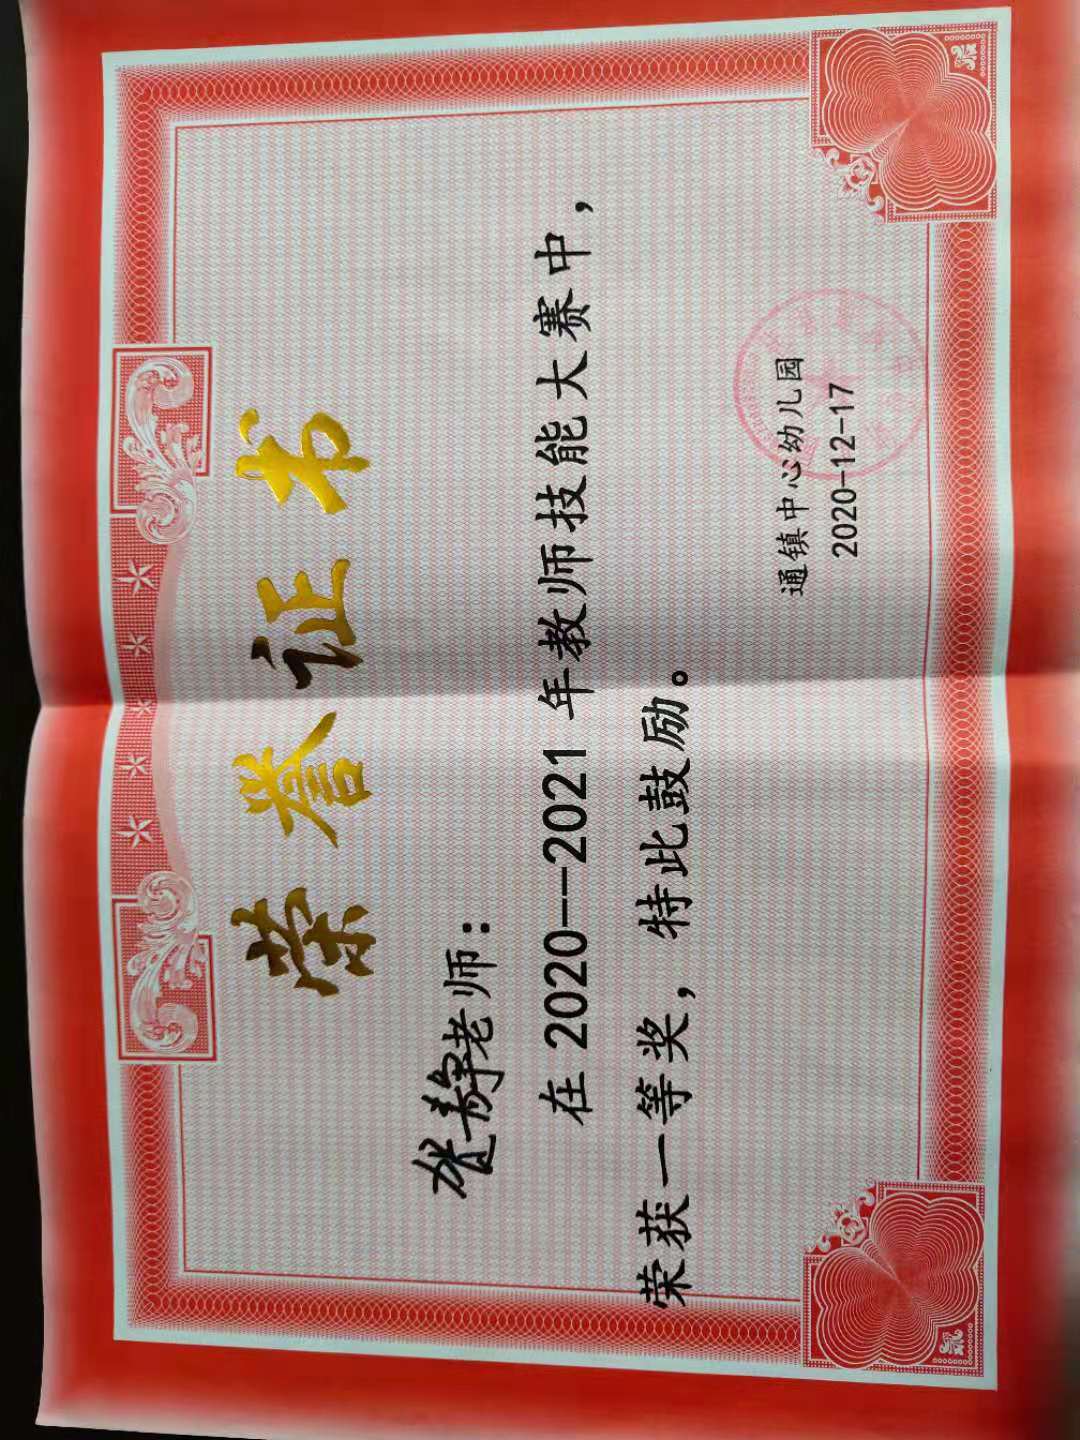 荣誉证书
静老师：
在 2020--2021 年教师技能大赛中，
荣获一等奖，特此鼓励。
通镇中心幼儿园
2020-12-17